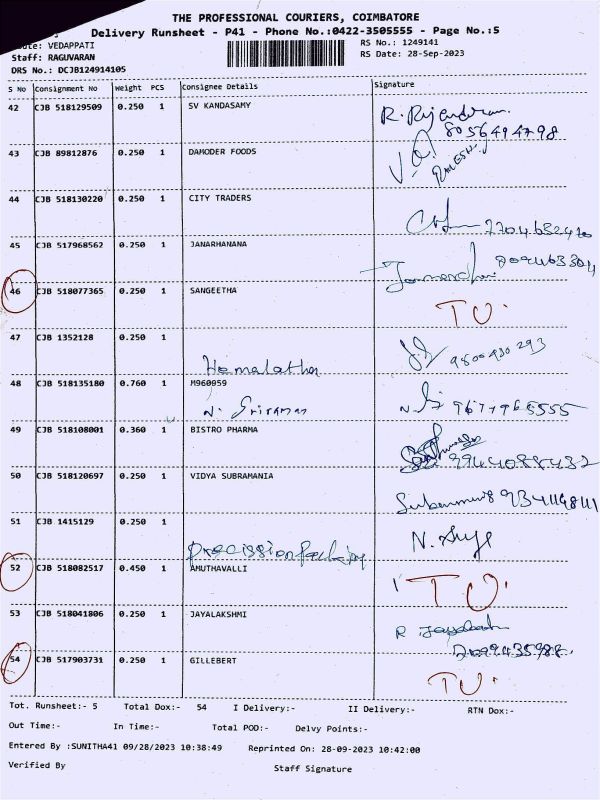 THE PROFESSIONAL COURIERS, COIMBATORE
Delivery Runsheet - P41 - Phone No.:0422-3505555 - Page No.:5
Route: VEDAPPATI RS No.: 1249141
Staff: RAGUVARAN RS Date: 28-Sep-2023
DRS No.: DCJB124914105
S No Consignment No Weight PCS Consignee Details Signature
42 CJB 518129509 0.250 1 SV KANDASAMY R. Rajendiran
8056494798
43 CJB 89812876 0.250 1 DAMODER FOODS
44 CJB 518130220 0.250 1 CITY TRADERS
45 CJB 517968562 0.250 1 JANARHANANA
46 CJB 518077365 0.250 1 SANGEETHA T U.
47 CJB 1352128 0.250 1
Hemalatha
48 CJB 518135180 0.760 1 M960959
N. Sriraman
49 CJB 518108001 0.360 1 BISTRO PHARMA
9944088432
50 CJB 518120697 0.250 1 VIDYA SUBRAMANIA
51 CJB 1415129 0.250 1
52 CJB 518082517 0.450 1 AMUTHAVALLI T U.
53 CJB 518041806 0.250 1 JAYALAKSHMI
54 CJB 517903731 0.250 1 GILLEBERT T U.
Tot. Runsheet:- 5 Total Dox:- 54 I Delivery:- II Delivery:- RTN Dox:-
Out Time:- In Time:- Total POD:- Delvy Points:-
Entered By :SUNITHA41 09/28/2023 10:38:49 Reprinted On: 28-09-2023 10:42:00
Verified By Staff Signature